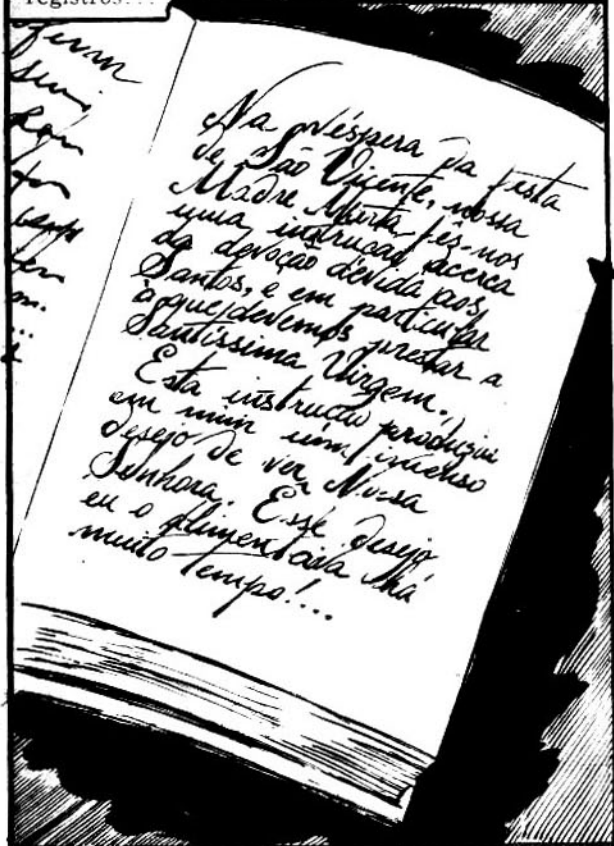 registros...
Na véspera da festa
de São Vicente, nossa
Madre Marta fêz-nos
uma instrucão acerca
da devoção devida aos
Santos, e em particular
à que devemos prestar a
Santíssima Virgem.
Esta instrucão produziu
em mim um imenso
desejo de ver Nossa
Senhora. Esse desejo
eu o alimentava há
muito tempo!...